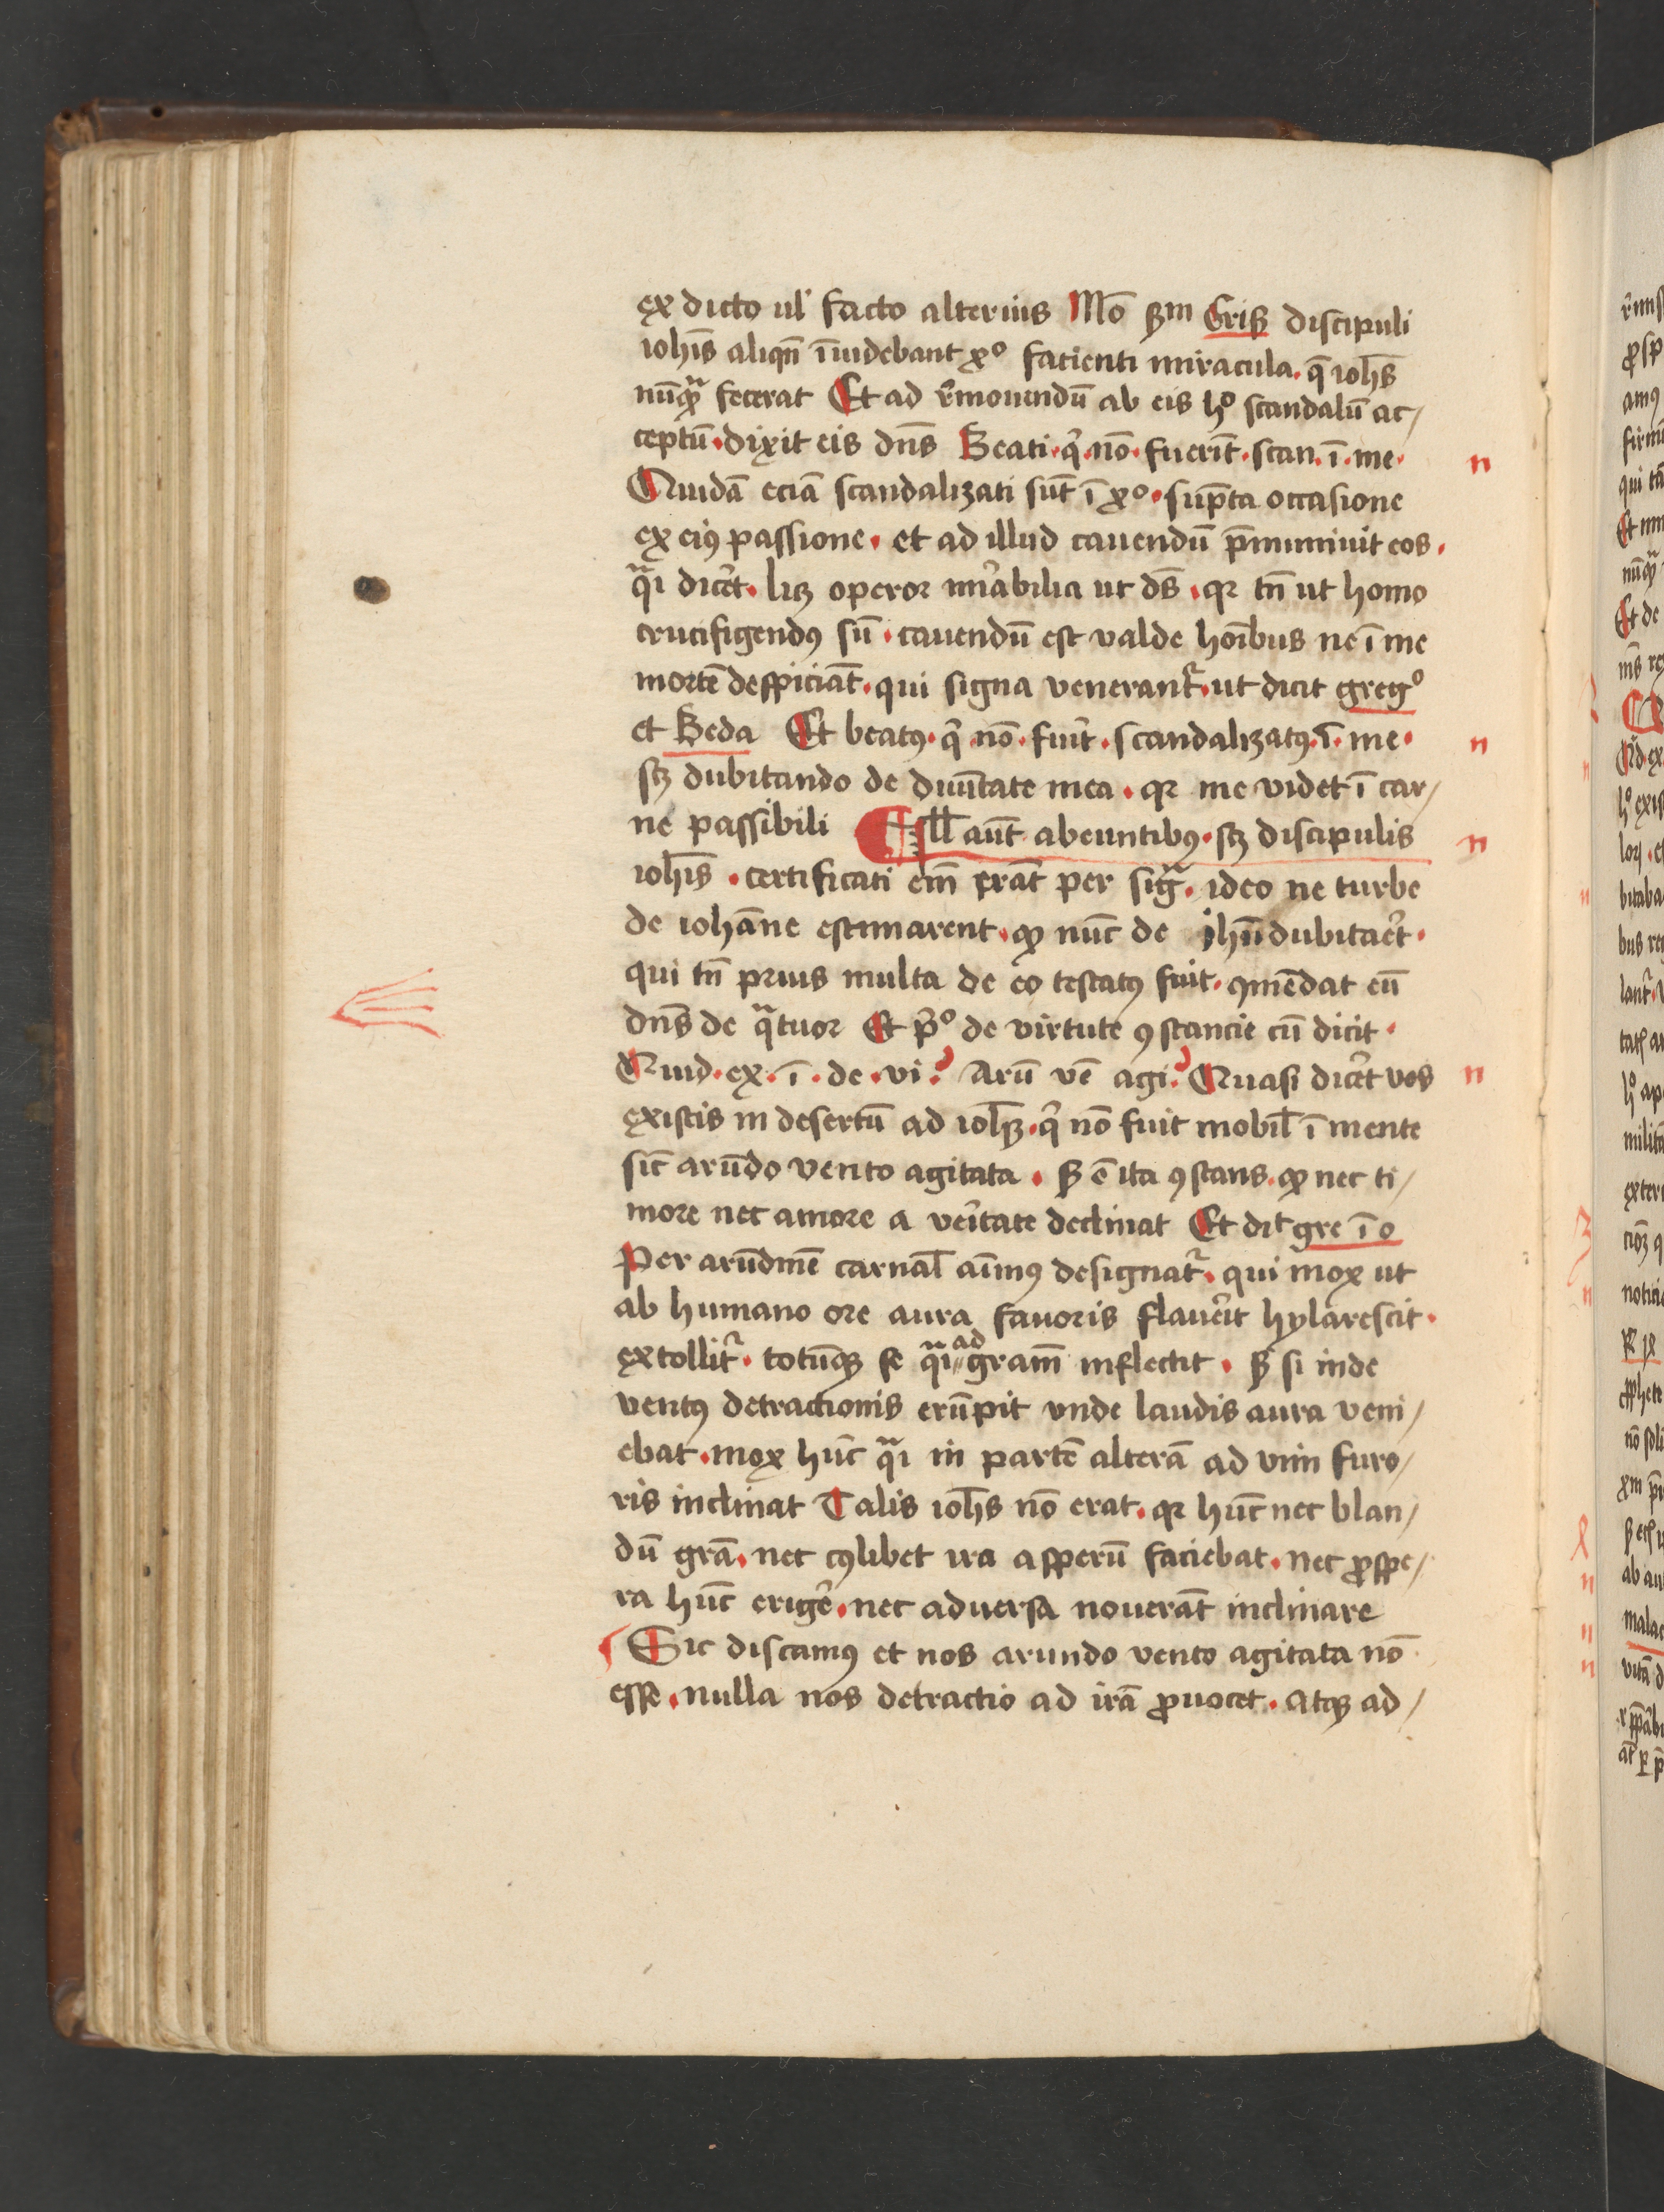 ex dicto ul' facto alterius Mo᷒ ẜm Crisꝫ discipuli
ioh̄is aliqn̄ īuidebant xº facienti miracula. q̄ ioh̄es
nūqᷓ fecerat Et ad r̄mouendū ab eis hº scandalū ac/
ceptū. dixit eis dn̄s Beati. q̇. nō. fuerīt. scan. ī. me.
Quidā eciā scandalizati sūt ī xº. sūpta occasione
ex eiꝰ passione. et ad illud cauendū p̄muniuit eos.
qᷓi dic̄et. licꝫ operor mīrabilia ut ds̄. qꝛ tn̄ ut homo
crucifigendꝰ sū. cauendū est valde hoībus ne ī me
mortē despiciāt. qui signa venerant᷑. ut dicit gregº
et Beda Et beatꝰ. q̇. nō. fuīt. scandalizatꝰ. ī. me.
scꝫ dubitando de diuītate mea. qꝛ me videt ī car/
ne passibili Ill̄ aūt abeuntibꝰ. scꝫ discipulis
ioh̄is. certificati em̄ erāt per sigᷓ. ideo ne turbe
de iohāne estimarent. qꝙ nūc de ihū dubitar̄et.
qui tn̄ prius multa de eo testatꝰ fuit. ꝯmēdat eū
dn̄s de qᷓtuor Et pº de virtute ꝯstancie cū dicit.
Quid. ex. ī. de. vi? Arū vē agi? Quasi dic̄et vos
existis in desertū ad ioh̄eꝫ. q̇ nō fuit mobil̄ ī mente
sic̄ arūdo vento agitata. ẜ ē ita ꝯstans. qꝙ nec ti/
more nec amore a veītate declinat Et dit̄ gre ī o
Per arūdinē carnal̄ aīmꝰ designat᷑. qui mox ut
ab humano ore aura fauoris flauēit hylarescit.
extollit᷑. totūqꝫ se qᷓi ad gram̄ inflectit. ẜ si inde
ventꝰ detractionis erūpit vnde laudis aura veni/
ebat. mox hūc qᷓi in partē alterā ad vim furo/
ris inclinat Talis ioh̄es nō erat. qꝛ hūc nec blan/
dū grā. nec cꝰlibet ira asperū faciebat. nec ꝓspe/
ra hūc erigēe. nec aduersa nouerāt inclinare
Sic discamꝰ et nos arundo vento agitata nō
esse. nulla nos detractio ad irā ꝓuocet. atqꝫ ad/